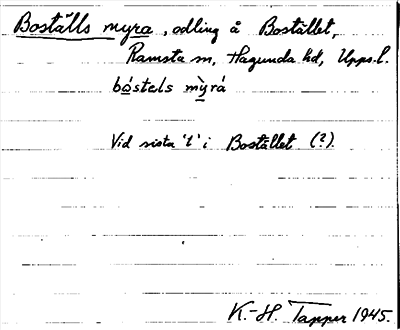 Boställs myra, odling å Bostället,
Ramsta sn, Hagunda hd, Upps. l.
bóstels mỳrá
Vid sista 't' i Bostället (?).
K.-H. Tapper 1945.